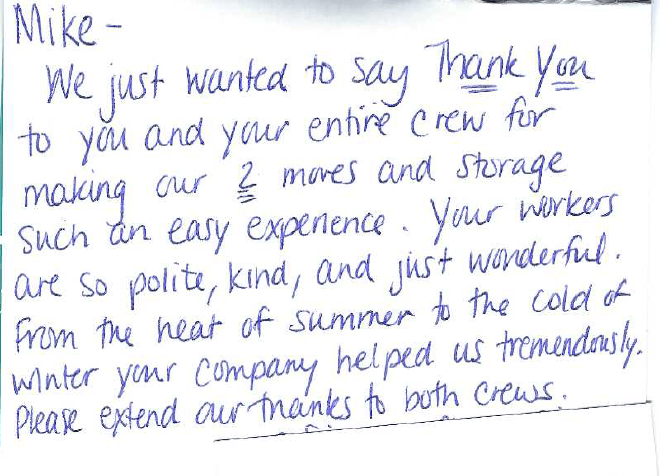 Mike -
We just wanted to say Thank You
to you and your entire crew for
making our 2 moves and storage
such an easy experience. Your workers
are so polite, kind, and just wonderful.
From the heat of summer to the cold of
winter your company helped us tremendously.
Please extend our thanks to both crews.